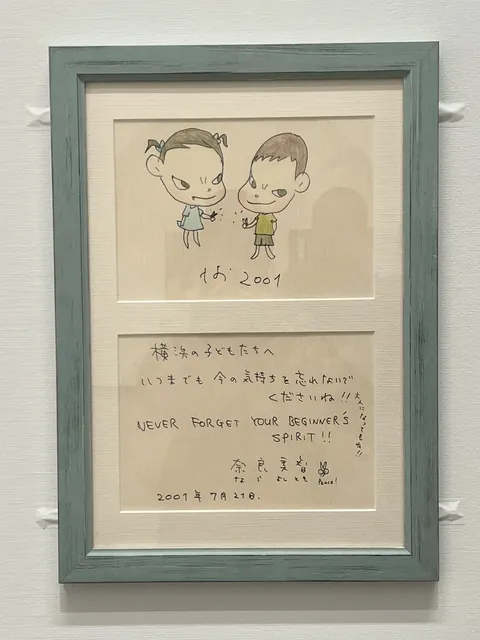 なら 2001
横浜の子どもたちへ
いつまでも 今の気持ちを忘れないで
くださいね!!
大人になってもね!!
NEVER FORGET YOUR BEGINNER'S
SPIRIT!!
奈良美智
なら よしとも Peace!
2001年7月21日.